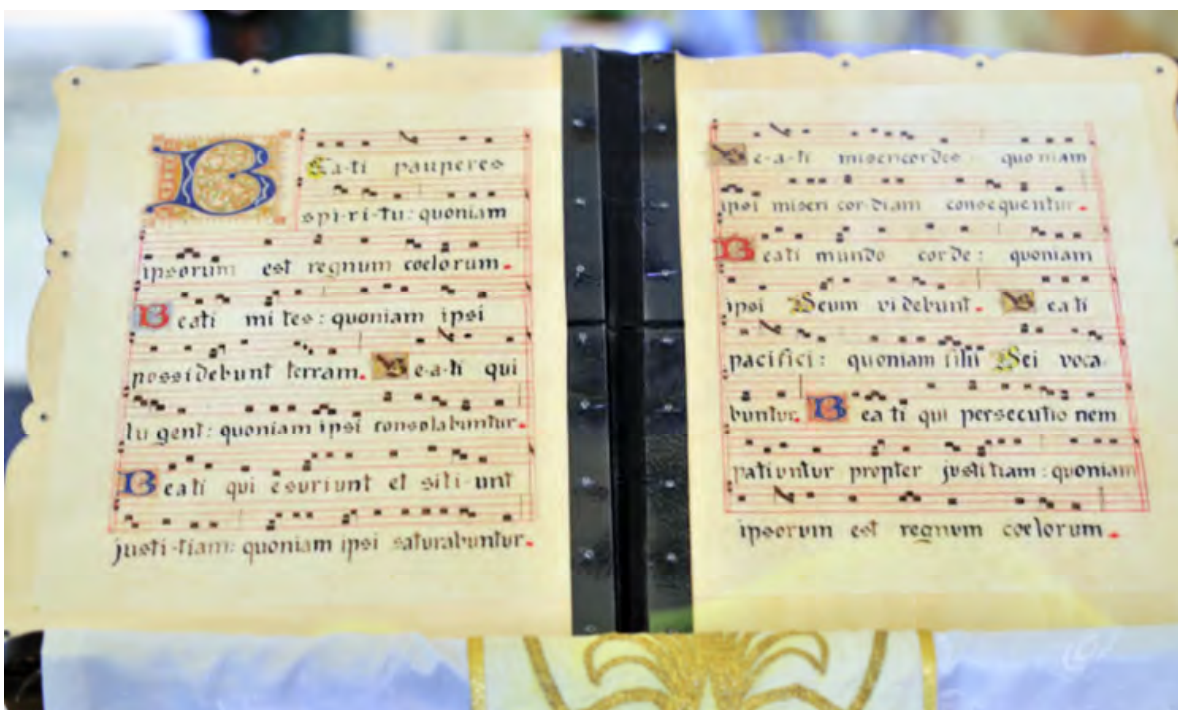 Bea-ti pauperes
spi-ri-tu: quoniam
ipsorum est regnum coelorum.
Beati mi tes: quoniam ipsi
possidebunt terram. Be-a-ti qui
lu gent: quoniam ipsi consolabuntur.
Beati qui esuriunt et siti-unt
justi-tiam: quoniam ipsi saturabuntur.
Be-a-ti misericordes quoniam
ipsi miseri cor-diam consequentur.
Beati mundo cor de: quoniam
ipsi Deum vi debunt. Bea ti
pacifici: quoniam filii Dei voca
buntur. Bea ti qui persecutio nem
patiuntur propter justi tiam: quoniam
ipsorum est regnum coelorum.